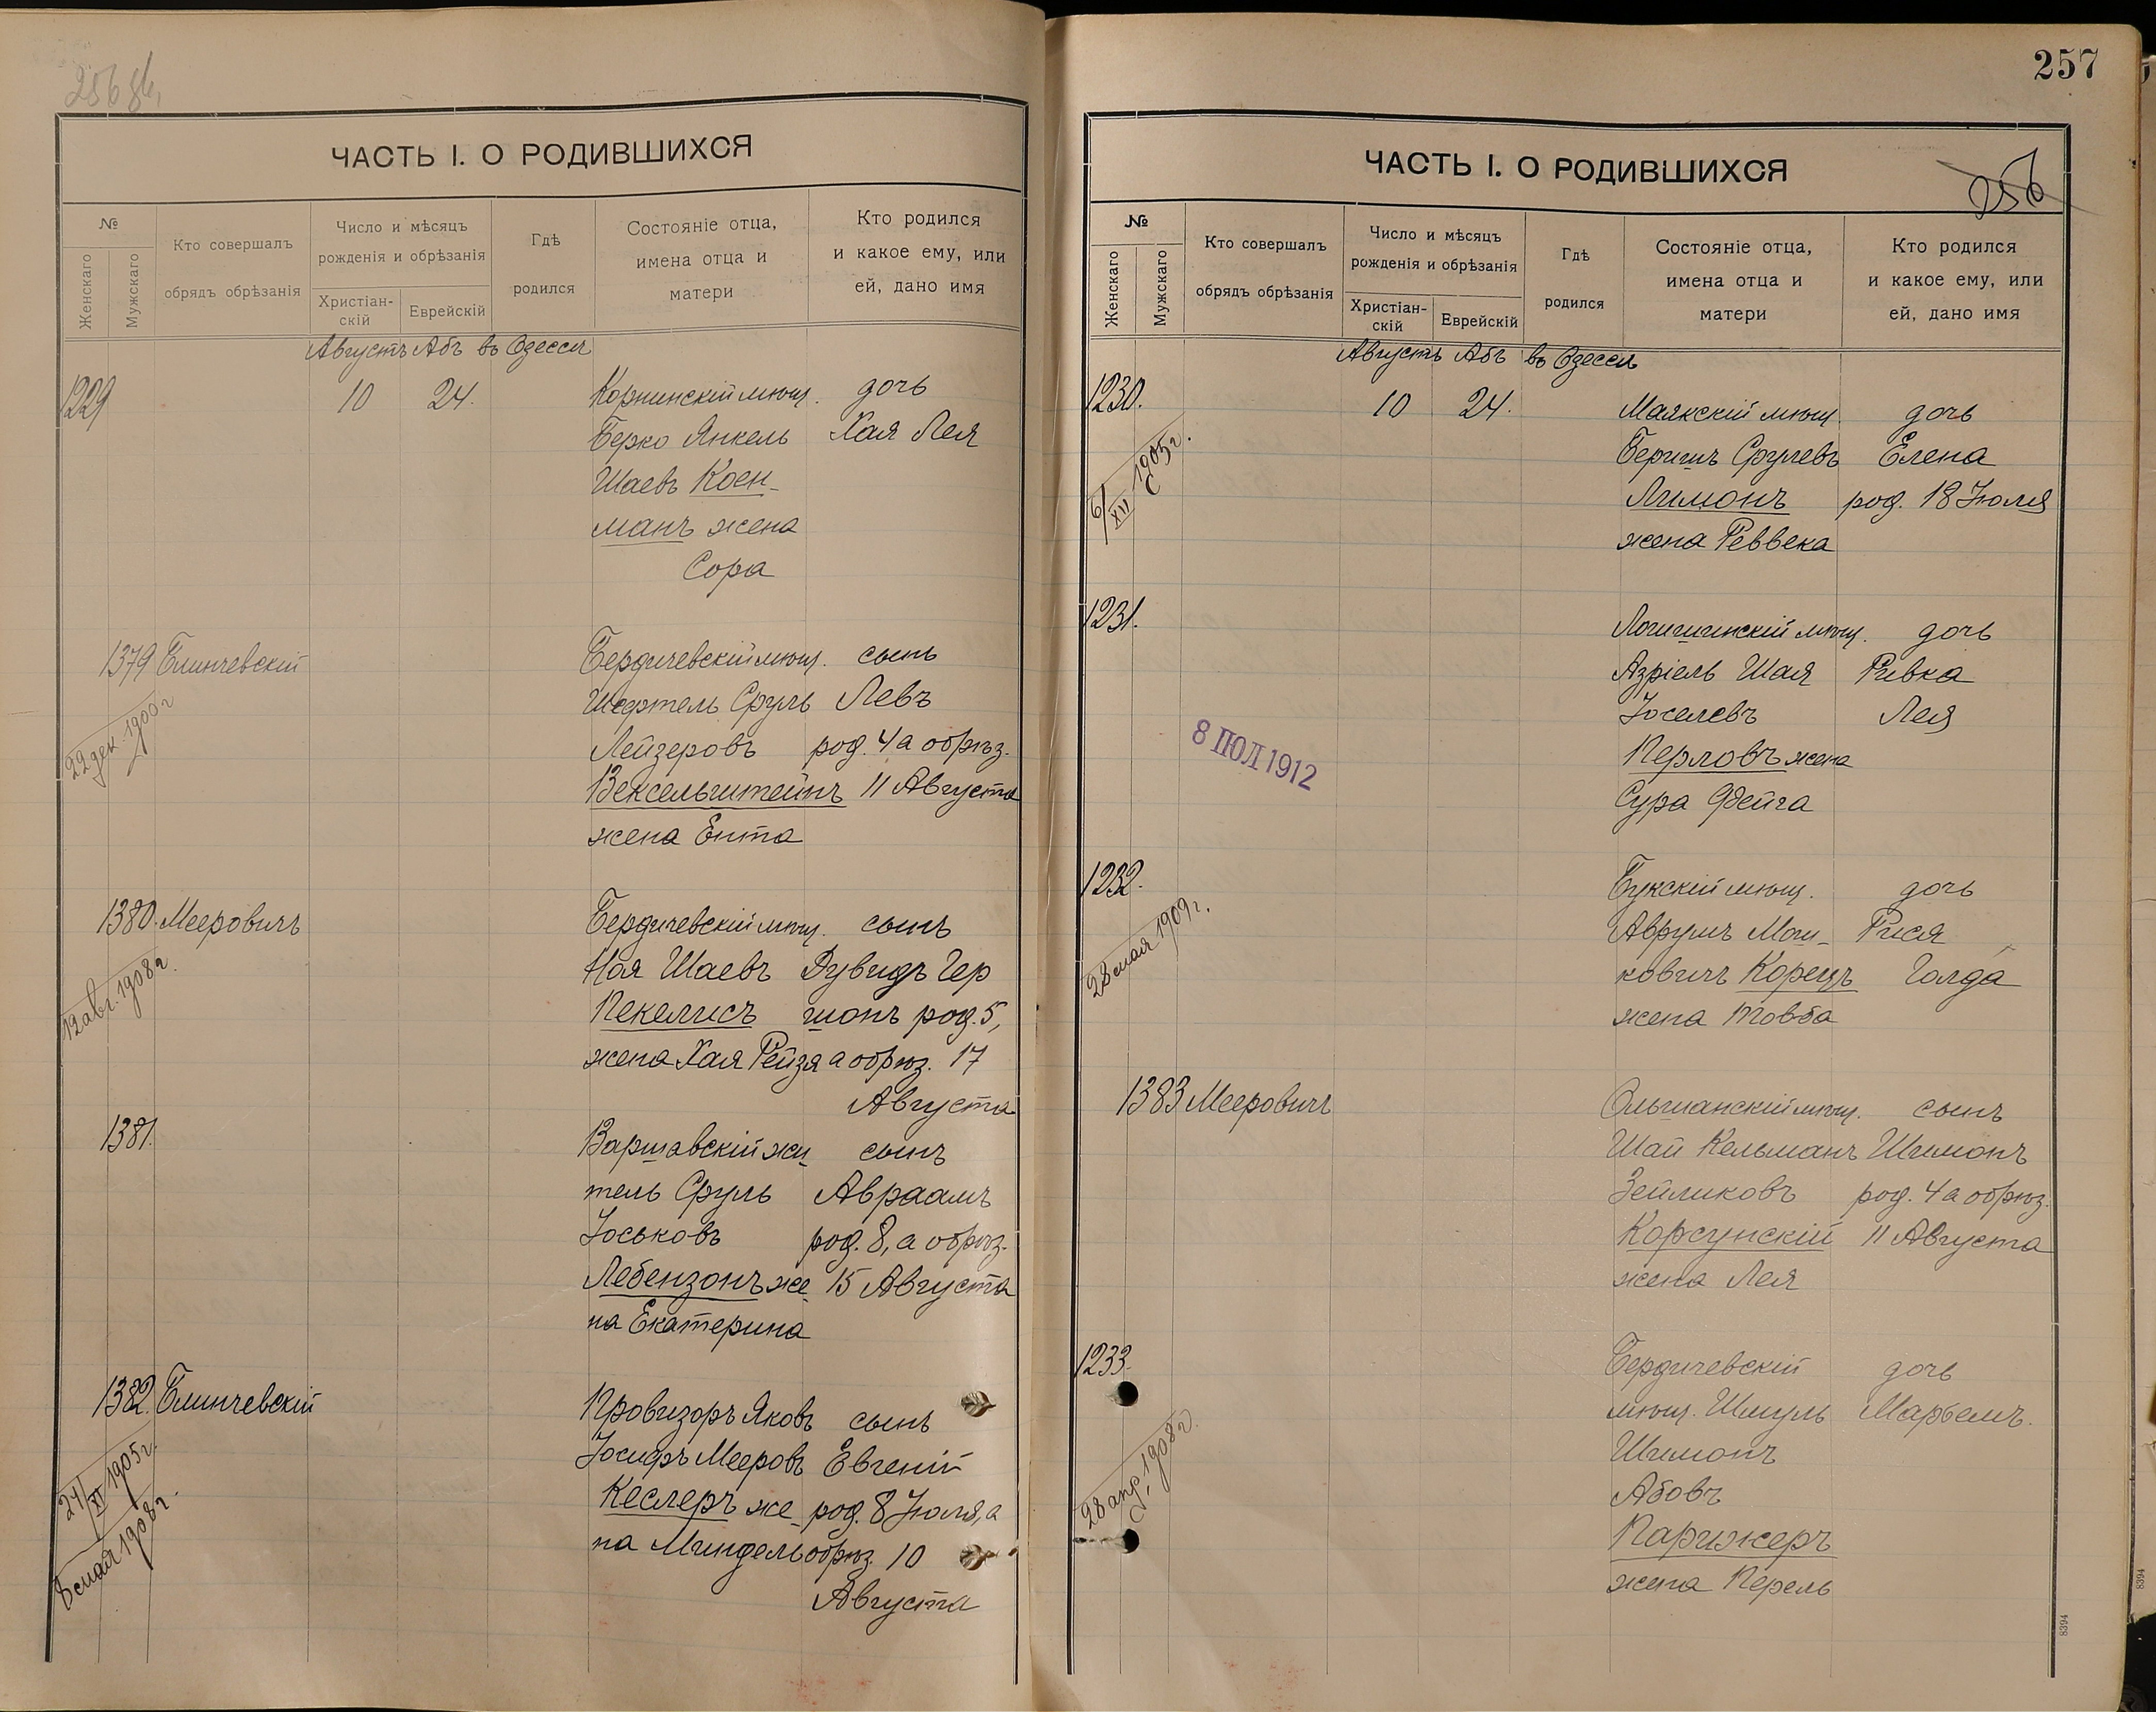 256 об.
ЧАСТЬ I. О РОДИВШИХСЯ
№
Женскаго
Мужскаго
Кто совершалъ
обрядъ обрѣзанія
Число и мѣсяцъ
рожденія и обрѣзанія
Христіан-
скій
Еврейскій
Гдѣ
родился
Состояніе отца,
имена отца и
матери
Кто родился
и какое ему, или
ей, дано имя
Августъ Абъ въ Одессѣ
1229 10 24. Корнинскій мѣщ. дочь
Берко Янкель Хая Лея
Шаевъ Коен-
манъ жена
Сора
1379 Блинчевскій Бердичевскій мѣщ. сынъ
22 дек. 1900 г.
Шефтель Сруль Левъ
Лейзеровъ род. 4 а обрѣз.
Вексельштейнъ 11 Августа
жена Ента
1380. Мееровичъ Бердичевскій мѣщ. сынъ
12 авг. 1908 г.
Ноя Шаевъ Дувидъ Гер
Пекелисъ шонъ род. 5,
жена Хая Рейзя а обрѣз. 17
Августа
1381. Варшавскій жи- сынъ
тель Сруль Авраамъ
Іоськовъ род. 8, а обрѣз.
Лебензонъ же- 15 Августа
на Екатерина
1382. Блинчевскій Провизоръ Яковъ сынъ
24/XI 1905 г.
8 мая 1908 г.
Іосифъ Мееровъ Евгеній
Кеслеръ же- род. 8 Іюля, а
на Миндель обрѣз. 10
Августа
257
256
ЧАСТЬ I. О РОДИВШИХСЯ
№
Женскаго
Мужскаго
Кто совершалъ
обрядъ обрѣзанія
Число и мѣсяцъ
рожденія и обрѣзанія
Христіан-
скій
Еврейскій
Гдѣ
родился
Состояніе отца,
имена отца и
матери
Кто родился
и какое ему, или
ей, дано имя
Августъ Абъ въ Одессѣ
1230. 10 24. Маякскій мѣщ. дочь
6/XII 1905 г.
Беришъ Срулевъ Елена
Лимонъ род. 18 Іюля
жена Реввека
1231. Логишинскій мѣщ. дочь
Азріель Шая Ривка
Іоселевъ Лея
8 ІЮЛ 1912
Перловъ жена
Сура Фейга
1232. Букскій мѣщ. дочь
28 мая 1909 г.
Аврумъ Мош- Рися
ковичъ Корецъ Голда
жена Товба
1383 Мееровичъ Ольшанскій мѣщ. сынъ
Шай Кельманъ Шимонъ
Зейликовъ род. 4 а обрѣз.
Корсунскій 11 Августа
жена Лея
1233. Бердичевскій дочь
28 апр. 1908 г.
мѣщ. Шмуль Марьемъ.
Шимонъ
Абовъ
Парижеръ
жена Перель
8394
8394